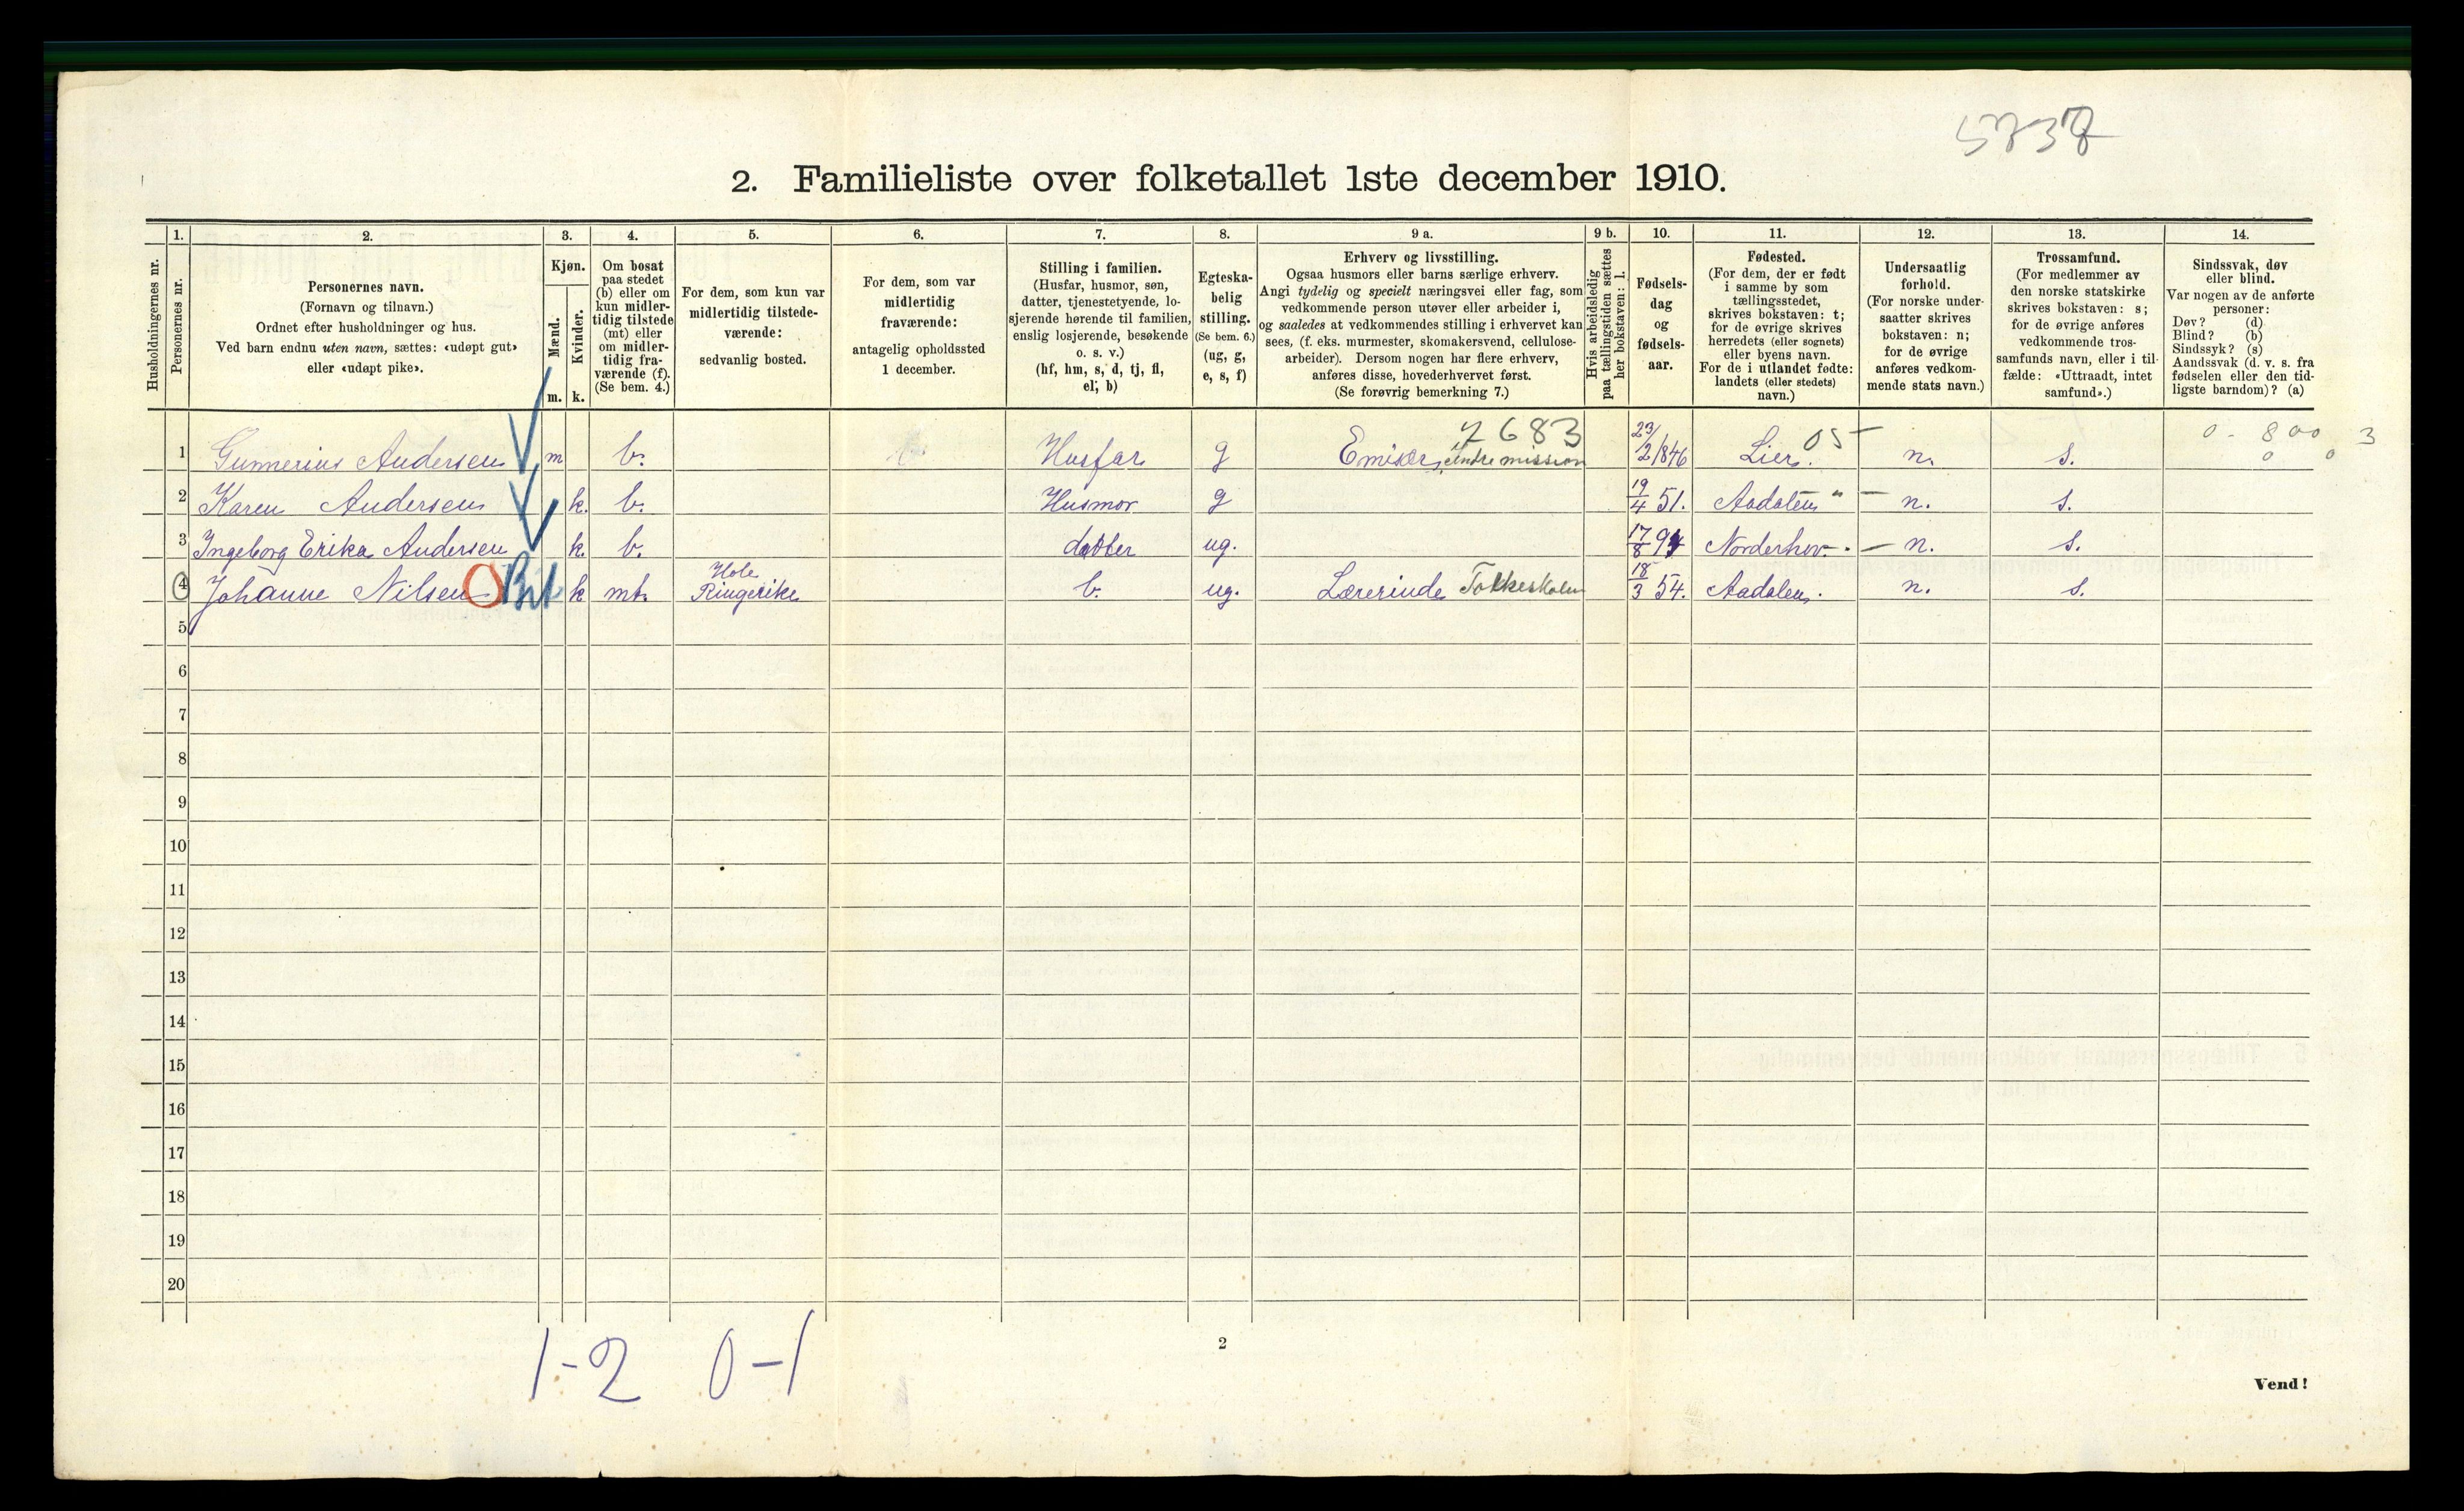 5737
2. Familieliste over folketallet 1ste december 1910.
Husholdningernes nr.
1.
Personernes nr.
2.
Personernes navn.
(Fornavn og tilnavn.)
Ordnet efter husholdninger og hus.
Ved barn endnu uten navn, sættes: «udøpt gut»
eller «udøpt pike».
3.
Kjøn.
Mænd.
m.
Kvinder.
k.
4.
Om bosat
paa stedet
(b) eller om
kun midler-
tidig tilstede
(mt) eller
om midler-
tidig fra-
værende (f).
(Se bem. 4.)
5.
For dem, som kun var
midlertidig tilstede-
værende:
sedvanlig bosted.
6.
For dem, som var
midlertidig
fraværende:
antagelig opholdssted
1 december.
7.
Stilling i familien.
(Husfar, husmor, søn,
datter, tjenestetyende, lo-
sjerende hørende til familien,
enslig losjerende, besøkende
o. s. v.)
(hf, hm, s, d, tj, fl,
el, b)
8.
Egteska-
belig
stilling.
(Se bem. 6.)
(ug, g,
e, s, f)
9 a.
Erhverv og livsstilling.
Ogsaa husmors eller barns særlige erhverv.
Angi tydelig og specielt næringsvei eller fag, som
vedkommende person utøver eller arbeider i,
og saaledes at vedkommendes stilling i erhvervet kan
sees, (f. eks. murmester, skomakersvend, cellulose-
arbeider). Dersom nogen har flere erhverv,
anføres disse, hovederhvervet først.
(Se forøvrig bemerkning 7.)
9 b.
Hvis arbeidsledig
paa tællingstiden sættes
her bokstaven: l.
10.
Fødsels-
dag
og
fødsels-
aar.
11.
Fødested.
(For dem, der er født
i samme by som
tællingsstedet,
skrives bokstaven: t;
for de øvrige skrives
herredets (eller sognets)
eller byens navn.
For de i utlandet fødte:
landets (eller stedets)
navn.)
12.
Undersaatlig
forhold.
(For norske under-
saatter skrives
bokstaven: n;
for de øvrige
anføres vedkom-
mende stats navn.)
13.
Trossamfund.
(For medlemmer av
den norske statskirke
skrives bokstaven: s;
for de øvrige anføres
vedkommende tros-
samfunds navn, eller i til-
fælde: «Uttraadt, intet
samfund».)
14.
Sindssvak, døv
eller blind.
Var nogen av de anførte
personer:
Døv? (d)
Blind? (b)
Sindssyk? (s)
Aandssvak (d. v. s. fra
fødselen eller den tid-
ligste barndom)? (a)
7683 05 0 - 800 3
1 Gunnerius Andersen m b. Husfar g Emisær, indre mission 23/2 1846 Lier. n. s. 0 0
2 Karen Andersen k. b. Husmor g 19/4 51. Aadalen n. s.
3 Ingeborg Erika Andersen k. b. datter ug. 17/8 94 Norderhov. n. s.
4 Johanne Nilsen k mt. Hole Ringerike b. ug. Lærerinde Folkeskolen 18/3 54. Aadalen. n. s.
5
6
7
8
9
10
11
12
13
14
15
16
17
18
19
20
1-2 0-1
2
Vend!